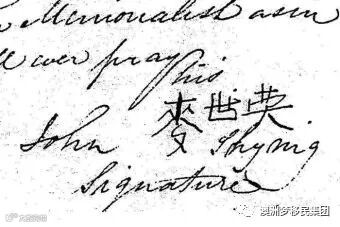 Memorialist as in
ever pray
his
John 麥世英 Shying
Signature
澳洲梦移民集团